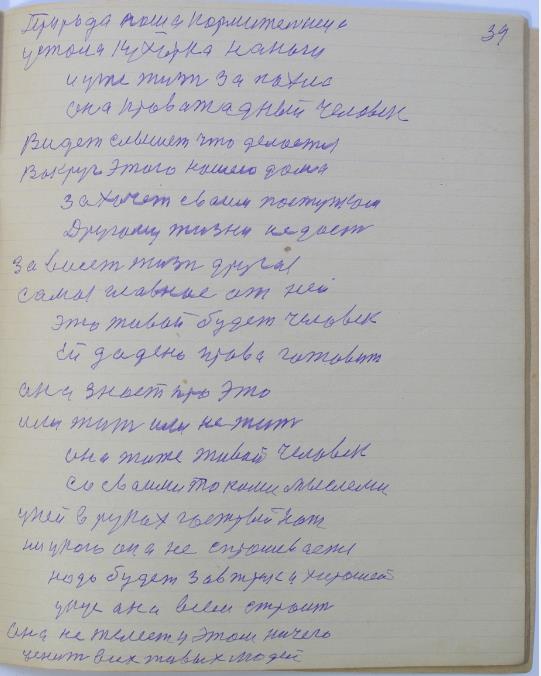 39
Природа наша кормителница
устола кухорка на ноги
и уже жит за
она права жадный человек
Видет слышет что делаетя
Вокруг этого нашего дома
захочет сваим поступком
Другому жизни недаст
Зависет жизт другая
самое главное от ней
это живой будет человек
Ей дадено права готовит
она знает про это
или жит или не жит
она тоже живой человек
со сваими токими мыслеми
уней в руках нож
ни укого она не спрошевает
надо будет завтрак и хороший
она всем строит
она не желеет у этом ничего
ценит всих живых людей